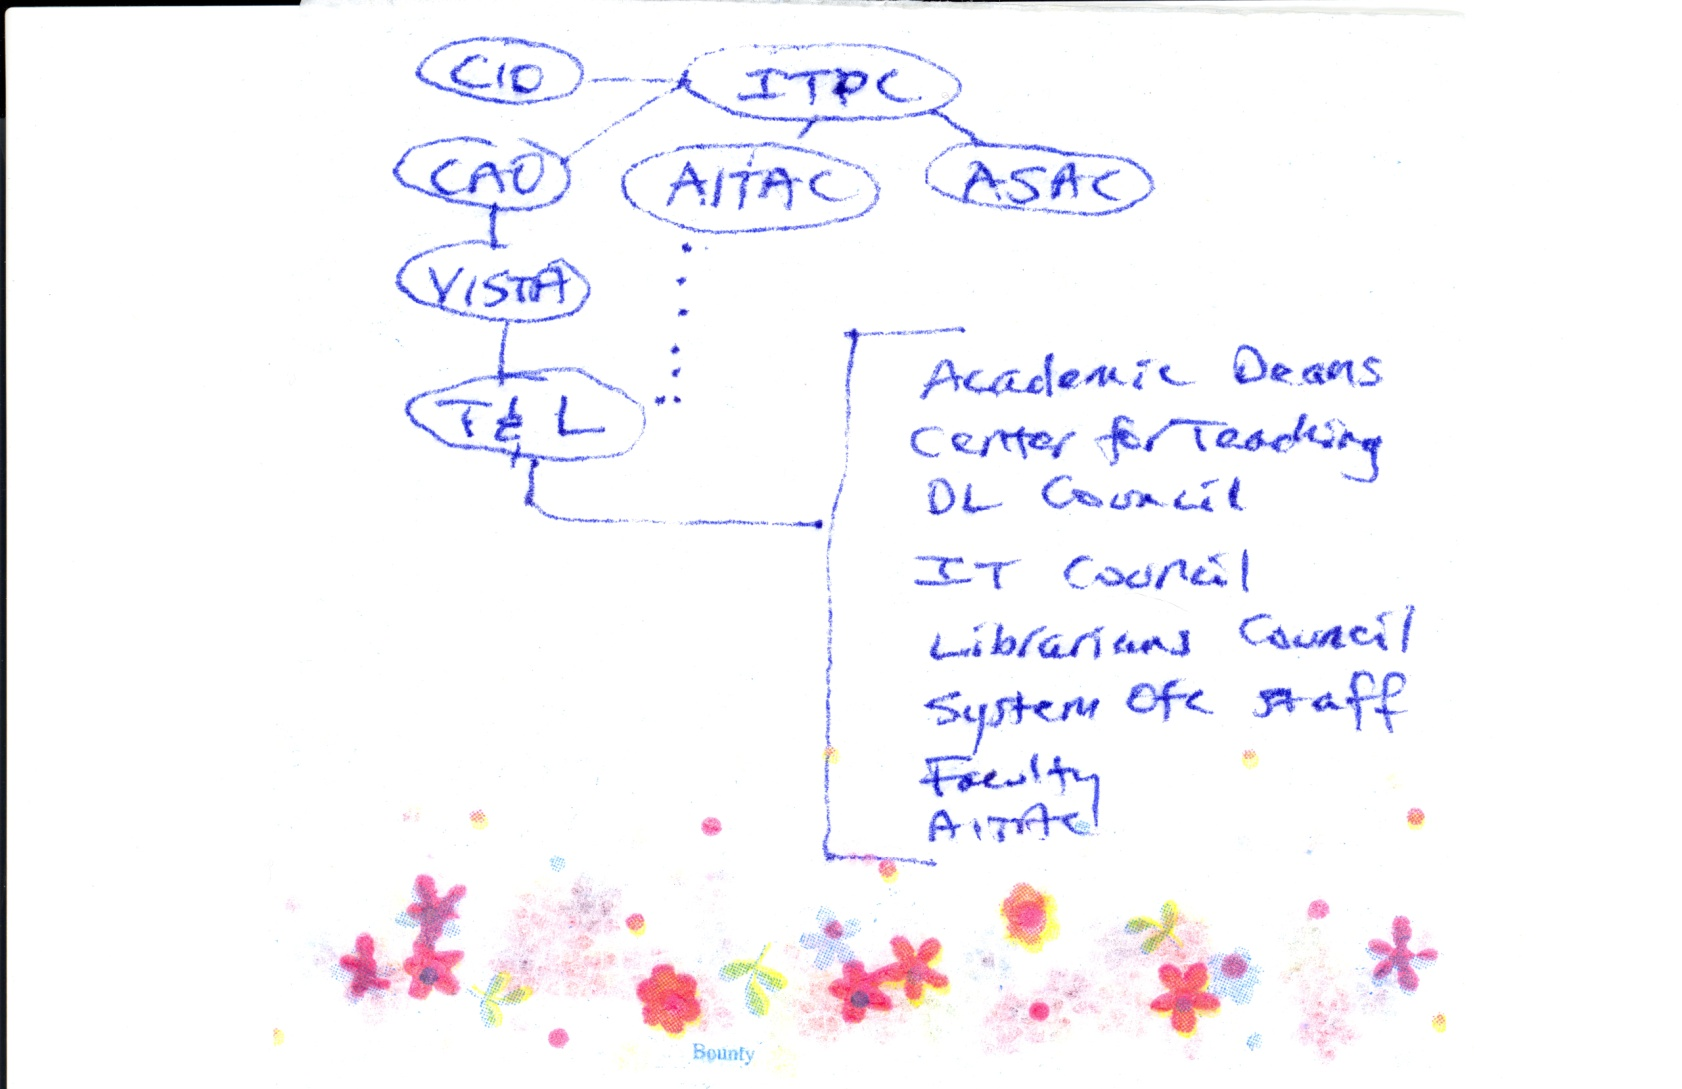 CIO ITPC
CAO AITAC ASAC
VISTA
T & L
Academic Deans
Center for Teaching
DL Council
IT Council
Librarians Council
System Ofc Staff
Faculty
AITAC
Bounty